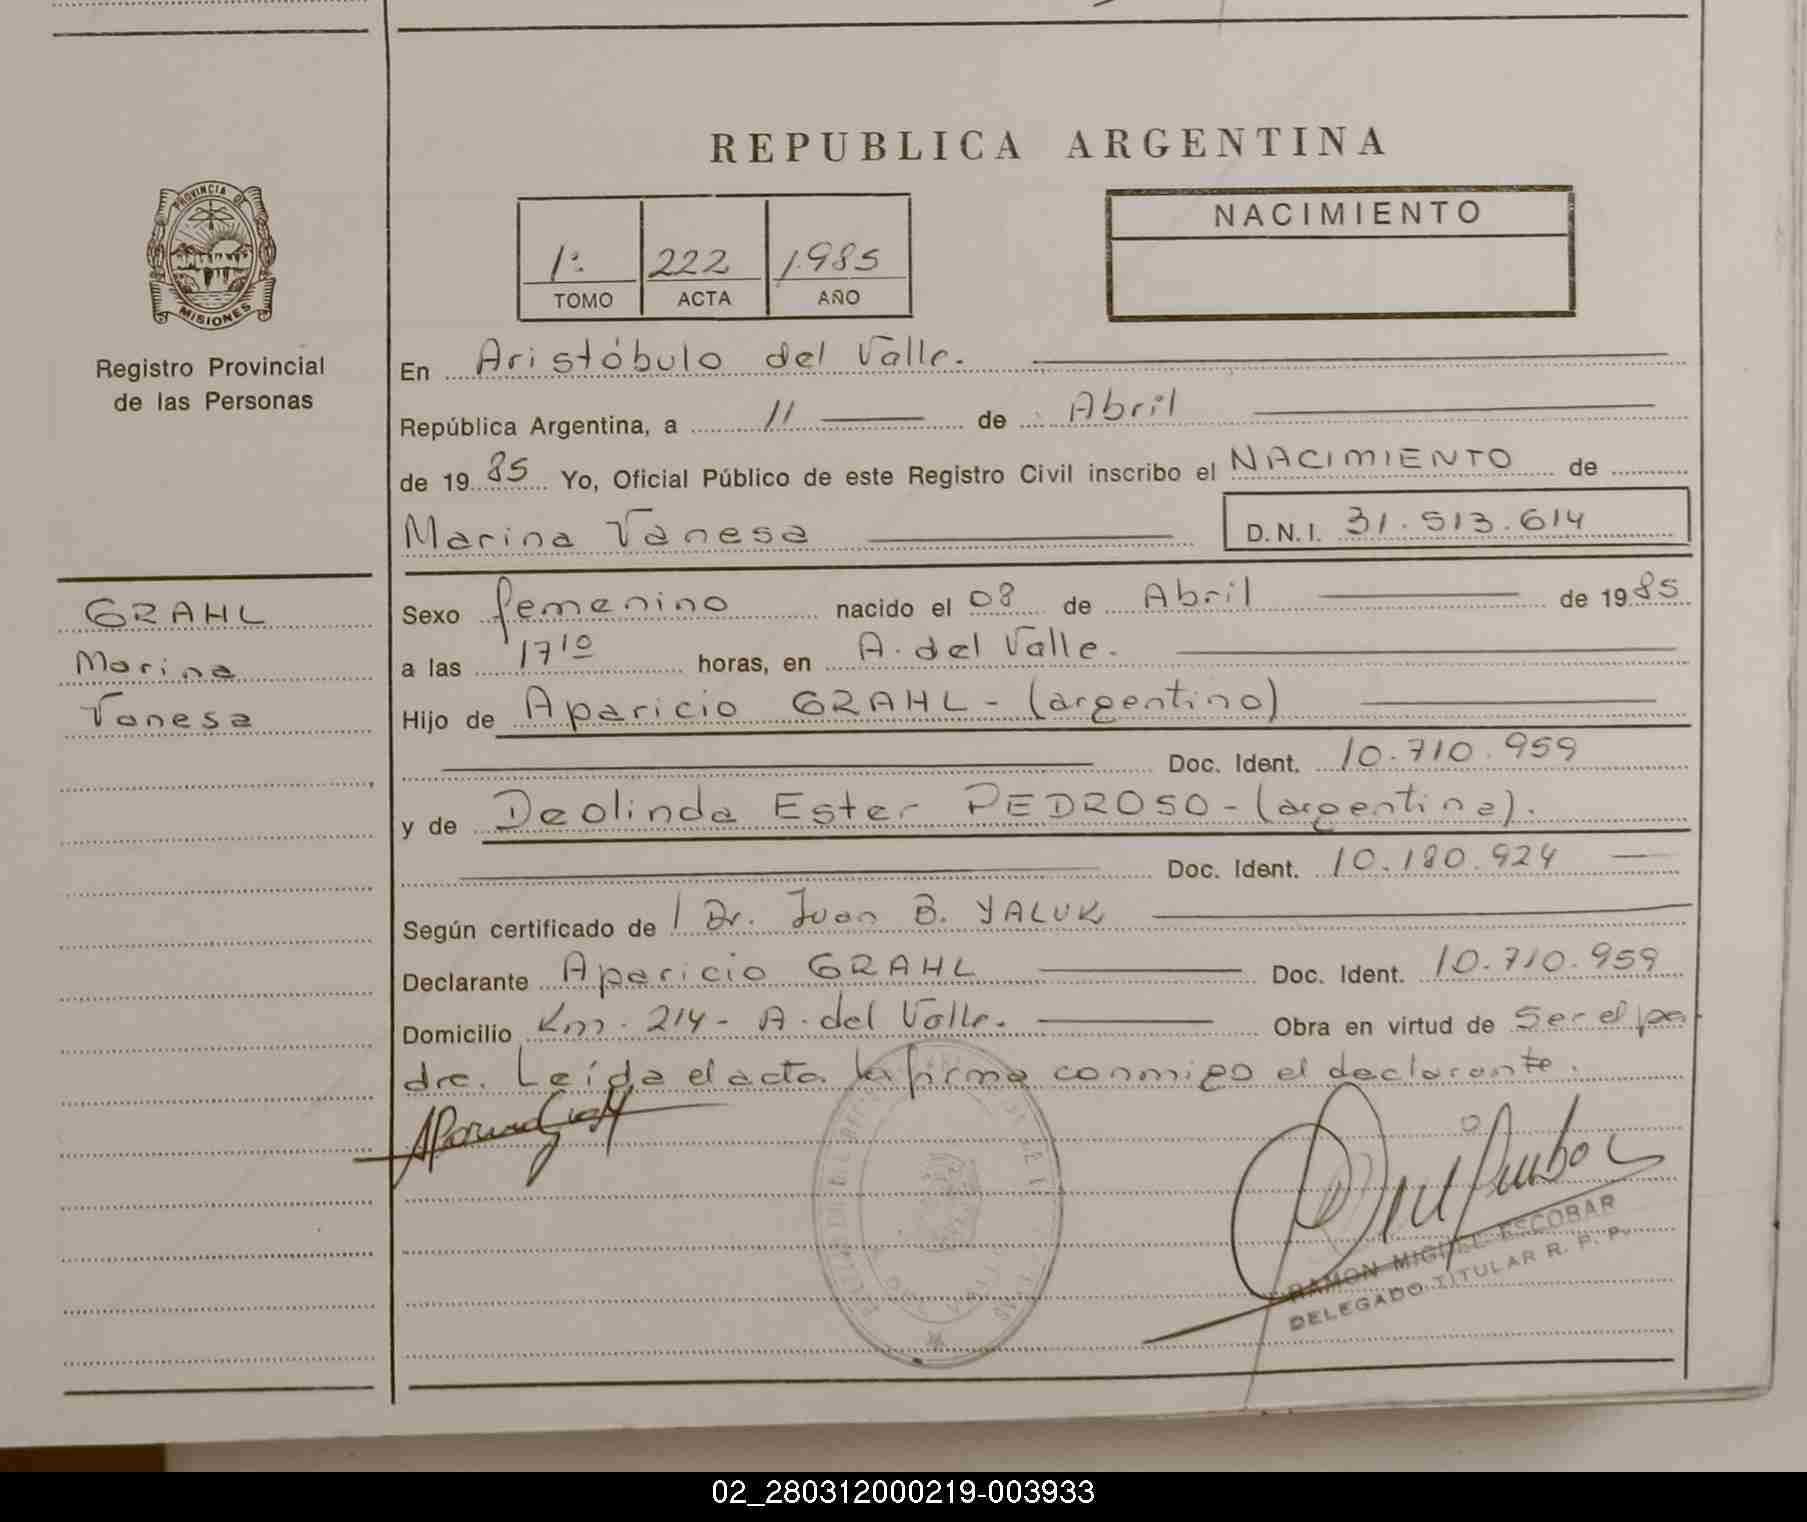 REPUBLICA ARGENTINA
PROVINCIA DE
MISIONES
Registro Provincial
de las Personas
1º 222 1.985
TOMO ACTA AÑO
NACIMIENTO
En Aristóbulo del Valle.
República Argentina, a 11 de Abril
de 1985 Yo, Oficial Público de este Registro Civil inscribo el NACIMIENTO de
Marina Vanesa D.N.I. 31.513.614
GRAHL
Marina
Vanesa
Sexo femenino nacido el 08 de Abril de 1985
a las 17 10 horas, en A. del Valle.
Hijo de Aparicio GRAHL - (argentino)
Doc. Ident. 10.710.959
y de Deolinda Ester PEDROSO - (argentina).
Doc. Ident. 10.180.924
Según certificado de Dr. Juan B. YALUK
Declarante Aparicio GRAHL Doc. Ident. 10.710.959
Domicilio Km. 214 - A. del Valle. Obra en virtud de Ser el pa
dre. Leída el acta la firma conmigo el declarante.
RAMON MIGUEL ESCOBAR
DELEGADO TITULAR R. P. P.
02_280312000219-003933